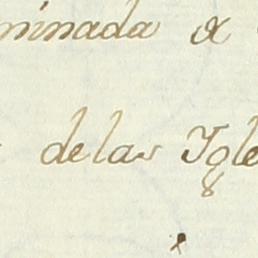 minada
delas Igle